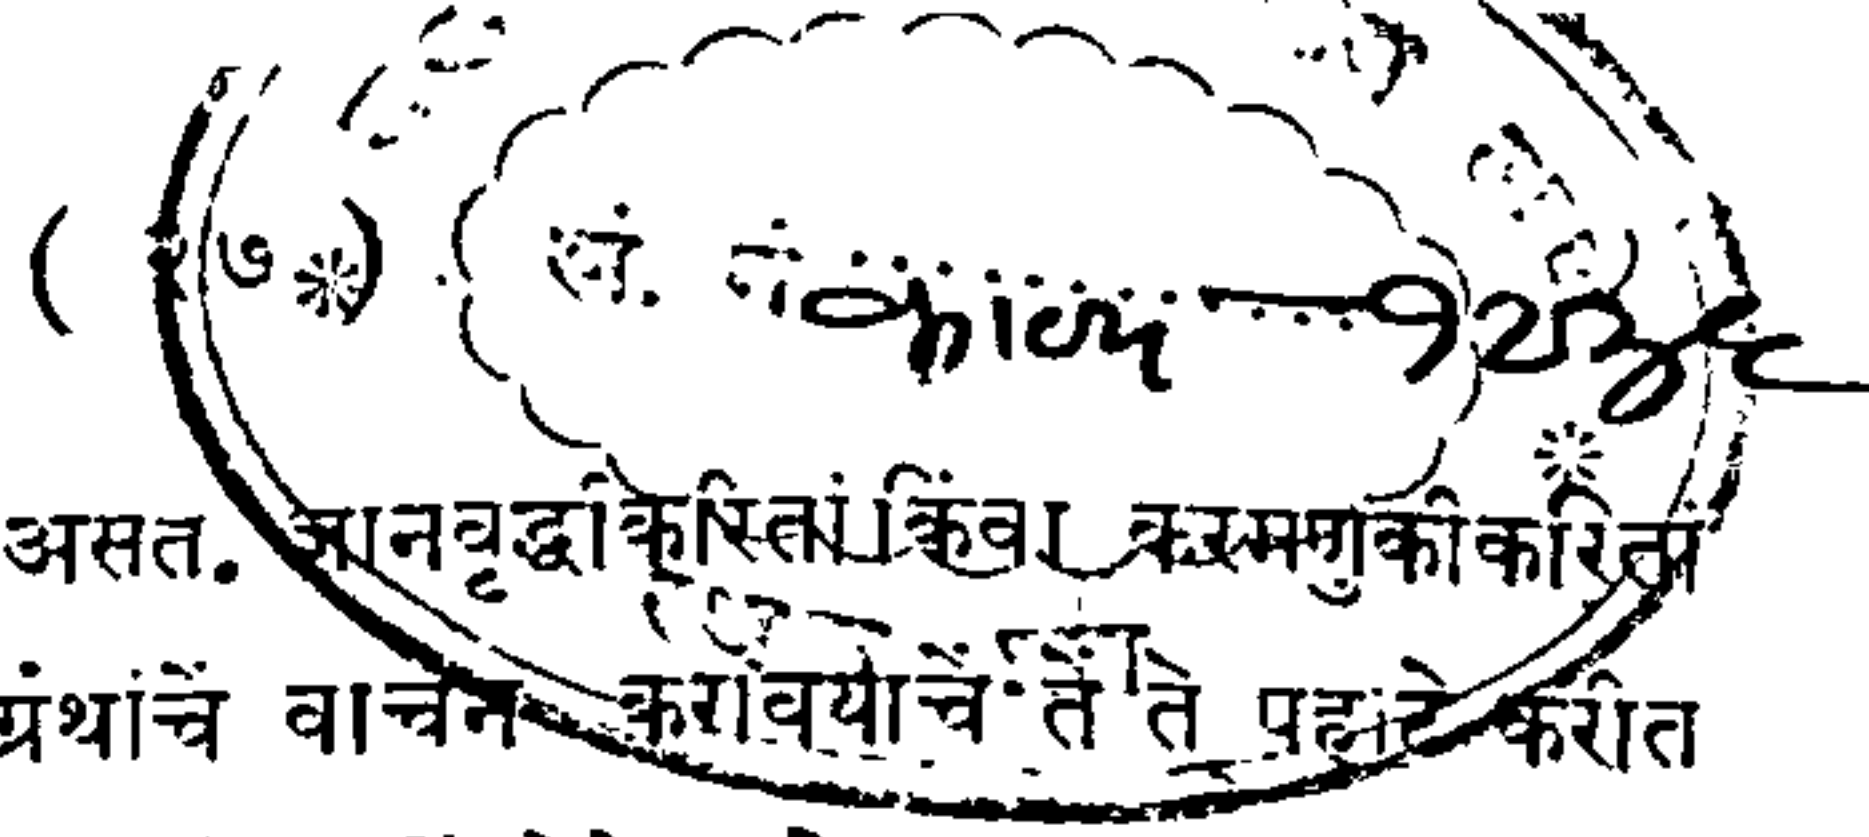 ( १७ )
सं. नं. काव्य
असत. ज्ञानवृद्धीकरितां किंवा करमणुकीकरितां
ग्रंथांचें वाचन करावयाचें तें ते पहाटे करीत